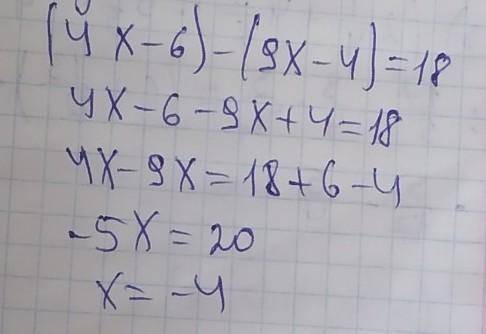 (4x-6)-(9x-4)=18
4x-6-9x+4=18
4x-9x=18+6-4
-5x=20
x=-4